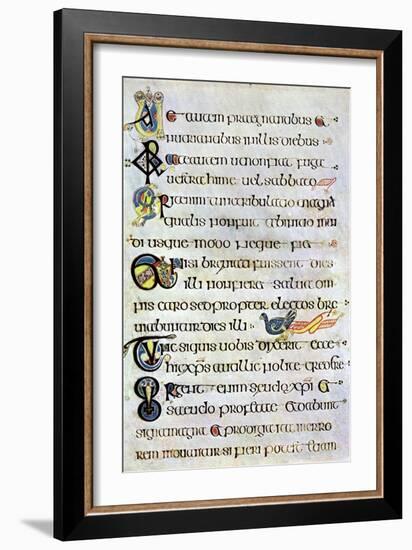 Uae autem praegnantibus et
nutrientibus in illis diebus
Orate autem ut non fiat fuga
uestra hieme uel sabbato
Erit enim tunc tribulatio magna
qualis non fuit ab initio mun
di usque modo neque fiet
Et nisi breuiati fuissent dies
illi non fieret salua om
nis caro sed propter electos bre
uiabuntur dies illi
Tunc siquis uobis dixerit ecce
hic xps aut illic nolite credere
Surgent enim seudo xpi et
seudo profetae et dabunt
signa magna et prodigia ita ut in erro
rem si fieri potest etiam